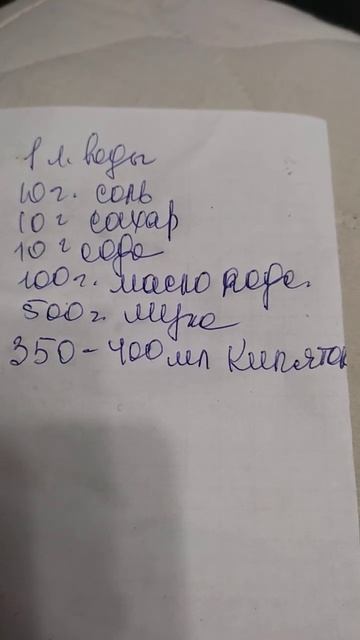 1 л. воды
10 г. соль
10 г сахар
10 г сода
100 г. масло
500 г. мука
350-400 мл Кипяток